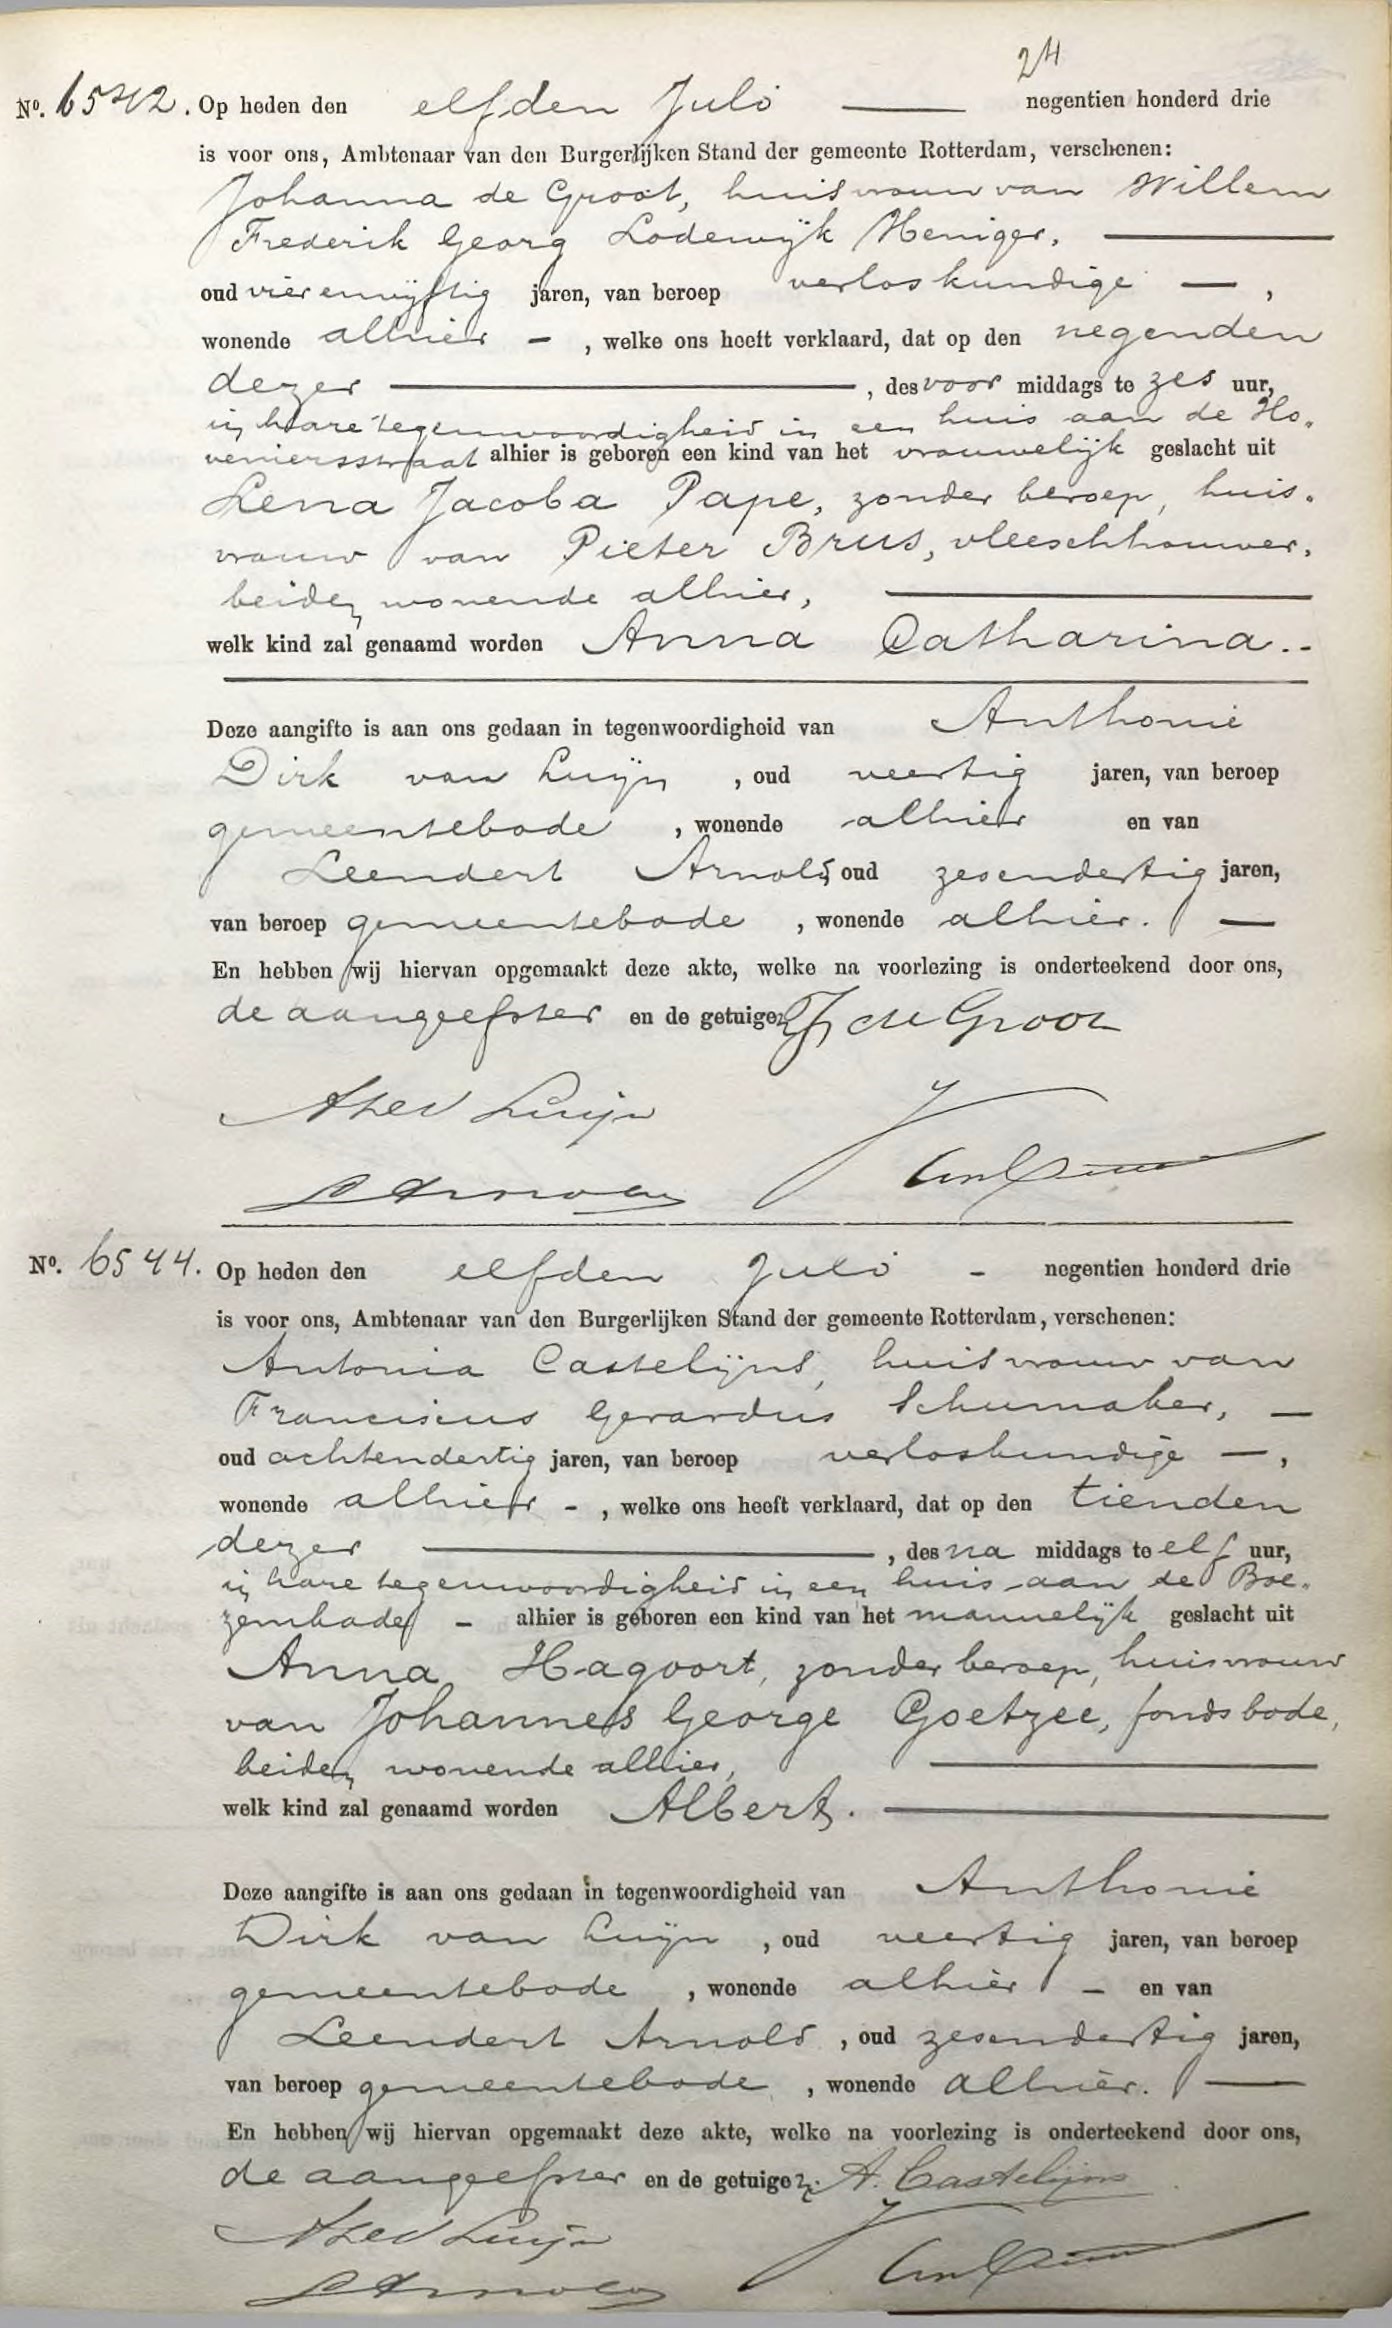 24
No. 6542. Op heden den elfden Juli — negentien honderd drie
is voor ons, Ambtenaar van den Burgerlijken Stand der gemeente Rotterdam, verschenen:
Johanna de Groot, huisvrouw van Willem
Frederik Georg Lodewijk Heniger, —
oud vierenvijftig jaren, van beroep verloskundige —,
wonende alhier - , welke ons heeft verklaard, dat op den negenden
dezer — , des voor middags te zes uur,
in hare tegenwoordigheid in een huis aan de Ho„
veniersstraat alhier is geboren een kind van het vrouwelijk geslacht uit
Lena Jacoba Pape, zonder beroep, huis„
vrouw van Pieter Brus, vleeschhouwer,
beiden wonende alhier, —
welk kind zal genaamd worden Anna Catharina. -
Deze aangifte is aan ons gedaan in tegenwoordigheid van Anthonie
Dirk van Luijn , oud veertig jaren, van beroep
gemeentebode , wonende alhier en van
Leendert Arnold, oud zesendertig jaren,
van beroep gemeentebode , wonende alhier. —
En hebben wij hiervan opgemaakt deze akte, welke na voorlezing is onderteekend door ons,
de aangeefster en de getuigen. J de Groot
ADvd Luijn
L Arnold
No. 6544. Op heden den elfden Juli - negentien honderd drie
is voor ons, Ambtenaar van den Burgerlijken Stand der gemeente Rotterdam, verschenen:
Antonia Castelijns, huisvrouw van
Franciscus Gerardus Schumaker, —
oud achtendertig jaren, van beroep verloskundige —,
wonende alhier - , welke ons heeft verklaard, dat op den tienden
dezer — , des na middags te elf uur,
in hare tegenwoordigheid in een huis aan de Boe„
zemkade - alhier is geboren een kind van het mannelijk geslacht uit
Anna Hagoort, zonder beroep, huisvrouw
van Johannes George Goetzee, fondsbode,
beiden wonende alhier, —
welk kind zal genaamd worden Albert. —
Deze aangifte is aan ons gedaan in tegenwoordigheid van Anthonie
Dirk van Luijn , oud veertig jaren, van beroep
gemeentebode , wonende alhier - en van
Leendert Arnold , oud zesendertig jaren,
van beroep gemeentebode , wonende alhier. —
En hebben wij hiervan opgemaakt deze akte, welke na voorlezing is onderteekend door ons,
de aangeefster en de getuigen. A. Castelijns
ADvd Luijn
L Arnold